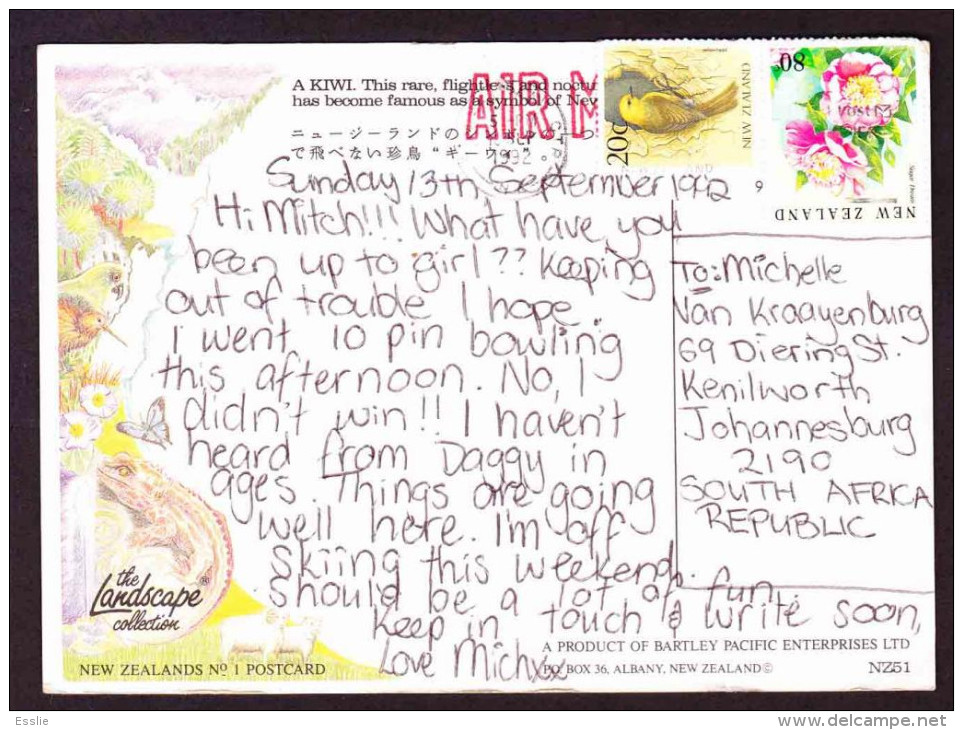 A KIWI. This rare, flightless and noctur
has become famous as a symbol of New
AIR M
ニュージーランドのシンボルの一つ
で飛べない珍鳥 “ギーウィ”。
1992
20c
NEW ZEALAND
80
NEW ZEALAND
9
Sunday 13th September 1992
Hi Mitch!!! What have you
been up to girl?? Keeping
out of trouble I hope.
I went 10 pin bowling
this afternoon. No, I
didn't win!! I haven't
heard from Daggy in
ages. Things are going
well here. I'm off
skiing this weekend.
Should be a lot of fun.
Keep in touch & write soon,
Love Mich xx
To: Michelle
Van Kraayenburg
69 Diering St.
Kenilworth
Johannesburg
2190
SOUTH AFRICA
REPUBLIC
the
Landscape®
collection
NEW ZEALANDS Nº 1 POSTCARD
A PRODUCT OF BARTLEY PACIFIC ENTERPRISES LTD
PO BOX 36, ALBANY, NEW ZEALAND©
NZ51
Esslie
www.delcampe.net